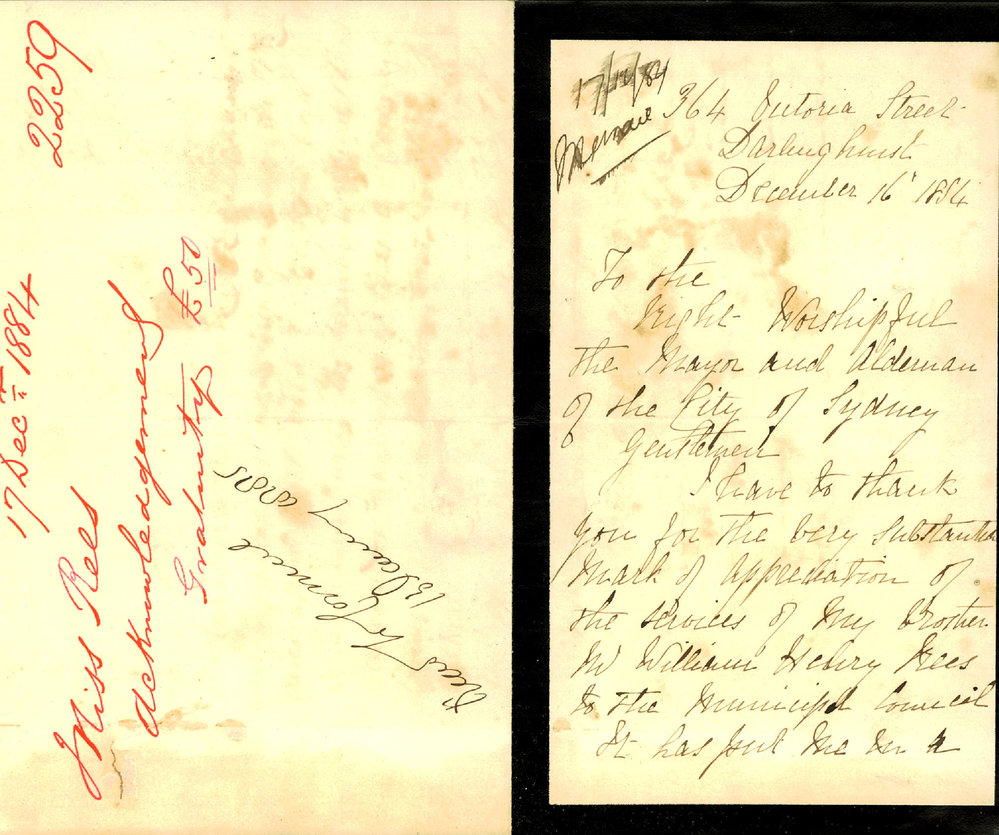 2259
17 Decr 1884
Miss Rees
Acknowledgement
Gratuity £50
Read to Council
17/12/84
364 Victoria Street
Darlinghurst
December 16' 1884
To the
Right Worshipful
the Mayor and Aldeman
of the City of Sydney
Gentlemen
I have to thank
you for the very substantial
mark of appreciation of
the services of my brother
Mr William Henry Rees
to the Municipal Council
It has put me in a